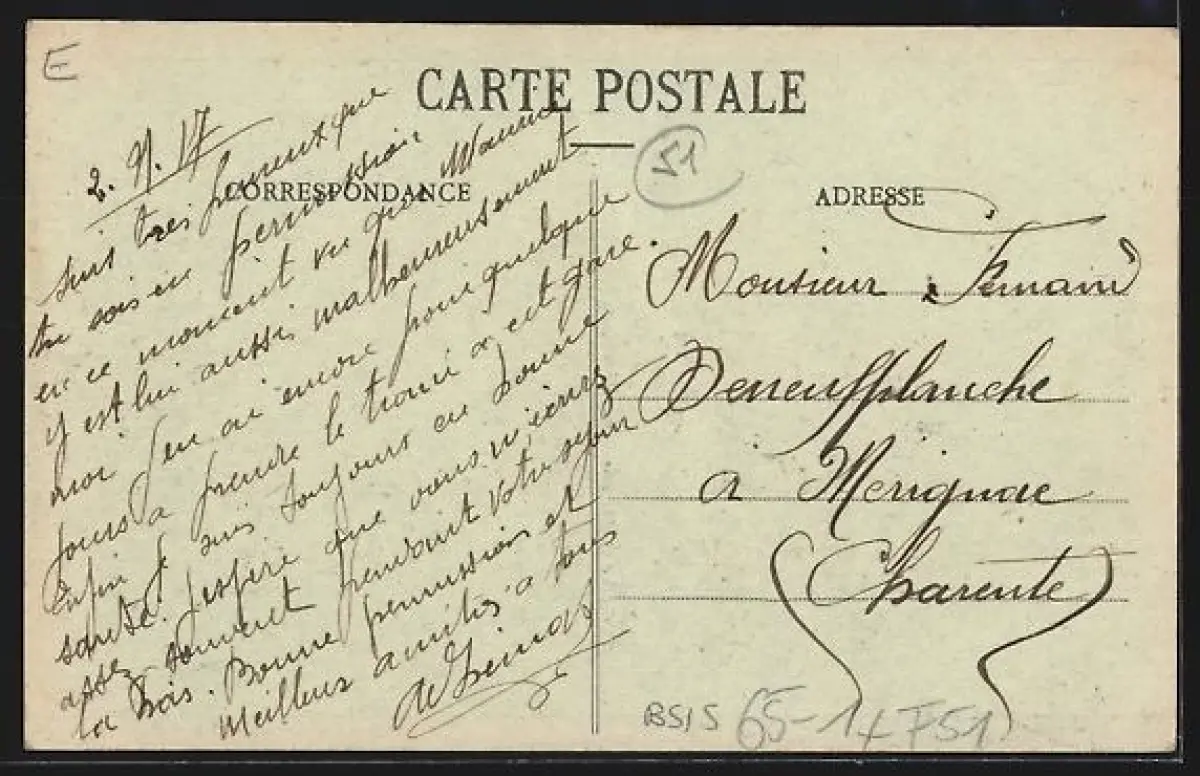 E
CARTE POSTALE
51
CORRESPONDANCE
ADRESSE
2. 9. 17
suis très heureux que
tu sois en permission
en ce moment vu que Maurice
y est lui aussi, malheureusement
moi j'en ai encore pour quelque
jours a prendre le train a cet gare.
Enfin je suis toujours en bonne
santé. J'espère que vous viendrez
assez souvent pendant votre séjour
la bas. Bonne permission et
Meilleurs amitiés a tous
Monsieur Fernand
Deneufplanche
à Mérignac
Charente
BSIS 65-14 F51